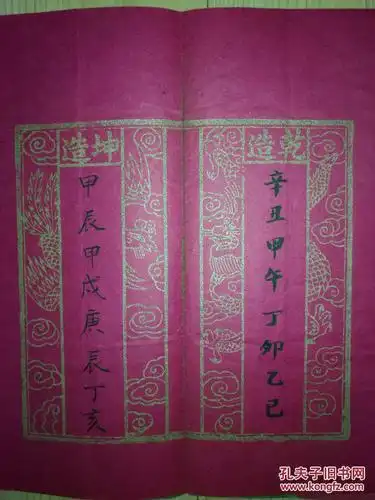 乾造
辛丑甲午丁卯乙巳
坤造
甲辰甲戌庚辰丁亥
孔夫子旧书网
www.kongfz.com